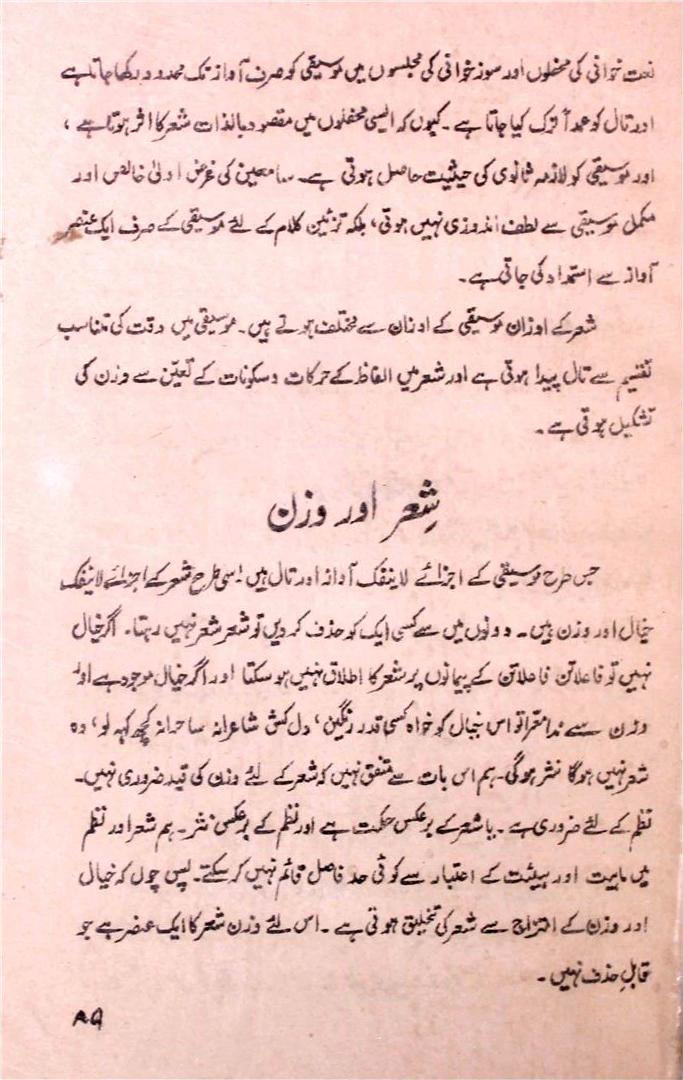 نعت خوانی کی محفلوں اور سوز خوانی کی مجلسوں میں موسیقی کو صرف آواز تک محدود رکھا جاتا ہے
اور تال کو عمداً ترک کیا جاتا ہے۔ کیوں کہ ایسی محفلوں میں مقصود بالذات شعر کا اثر ہوتا ہے،
اور موسیقی کو لازمہ ثانوی کی حیثیت حاصل ہوتی ہے۔ سامعین کی غرض اولیٰ خالص اور
مکمل موسیقی سے لطف اندوزی نہیں ہوتی، بلکہ تزئین کلام کے لئے موسیقی کے صرف ایک عنصر
آواز سے استمداد کی جاتی ہے۔
شعر کے اوزان موسیقی کے اوزان سے مختلف ہوتے ہیں۔ موسیقی میں وقت کی متناسب
تقسیم سے تال پیدا ہوتی ہے اور شعر میں الفاظ کے حرکات و سکونات کے تعیّن سے وزن کی
تشکیل ہوتی ہے۔
شِعر اور وزن
جس طرح موسیقی کے اجزائے لاینفک آواز اور تال ہیں اسی طرح شعر کے اجزائے لاینفک
خیال اور وزن ہیں۔ دونوں میں سے کسی ایک کو حذف کر دیں تو شعر شعر نہیں رہتا۔ اگر خیال
نہیں تو فاعلاتن فاعلاتن کے پیمانوں پر شعر کا اطلاق نہیں ہو سکتا اور اگر خیال موجود ہے اور
وزن سے معرّا تو اس خیال کو خواہ کسی قدر رنگین، دل کش شاعرانہ ساحرانہ کچھ کہہ لو، وہ
شعر نہیں ہوگا نثر ہوگی۔ ہم اس بات سے متفق نہیں کہ شعر کے لئے وزن کی قید ضروری نہیں۔
نظم کے لئے ضروری ہے۔ یا شعر کے برعکس حکمت ہے اور نظم کے برعکس نثر۔ ہم شعر اور نظم
میں ماہیت اور ہیئت کے اعتبار سے کوئی حد فاصل قائم نہیں کر سکتے۔ پس چوں کہ خیال
اور وزن کے امتزاج سے شعر کی تخلیق ہوتی ہے۔ اس لئے وزن شعر کا ایک عنصر ہے جو
قابلِ حذف نہیں۔
۸۹